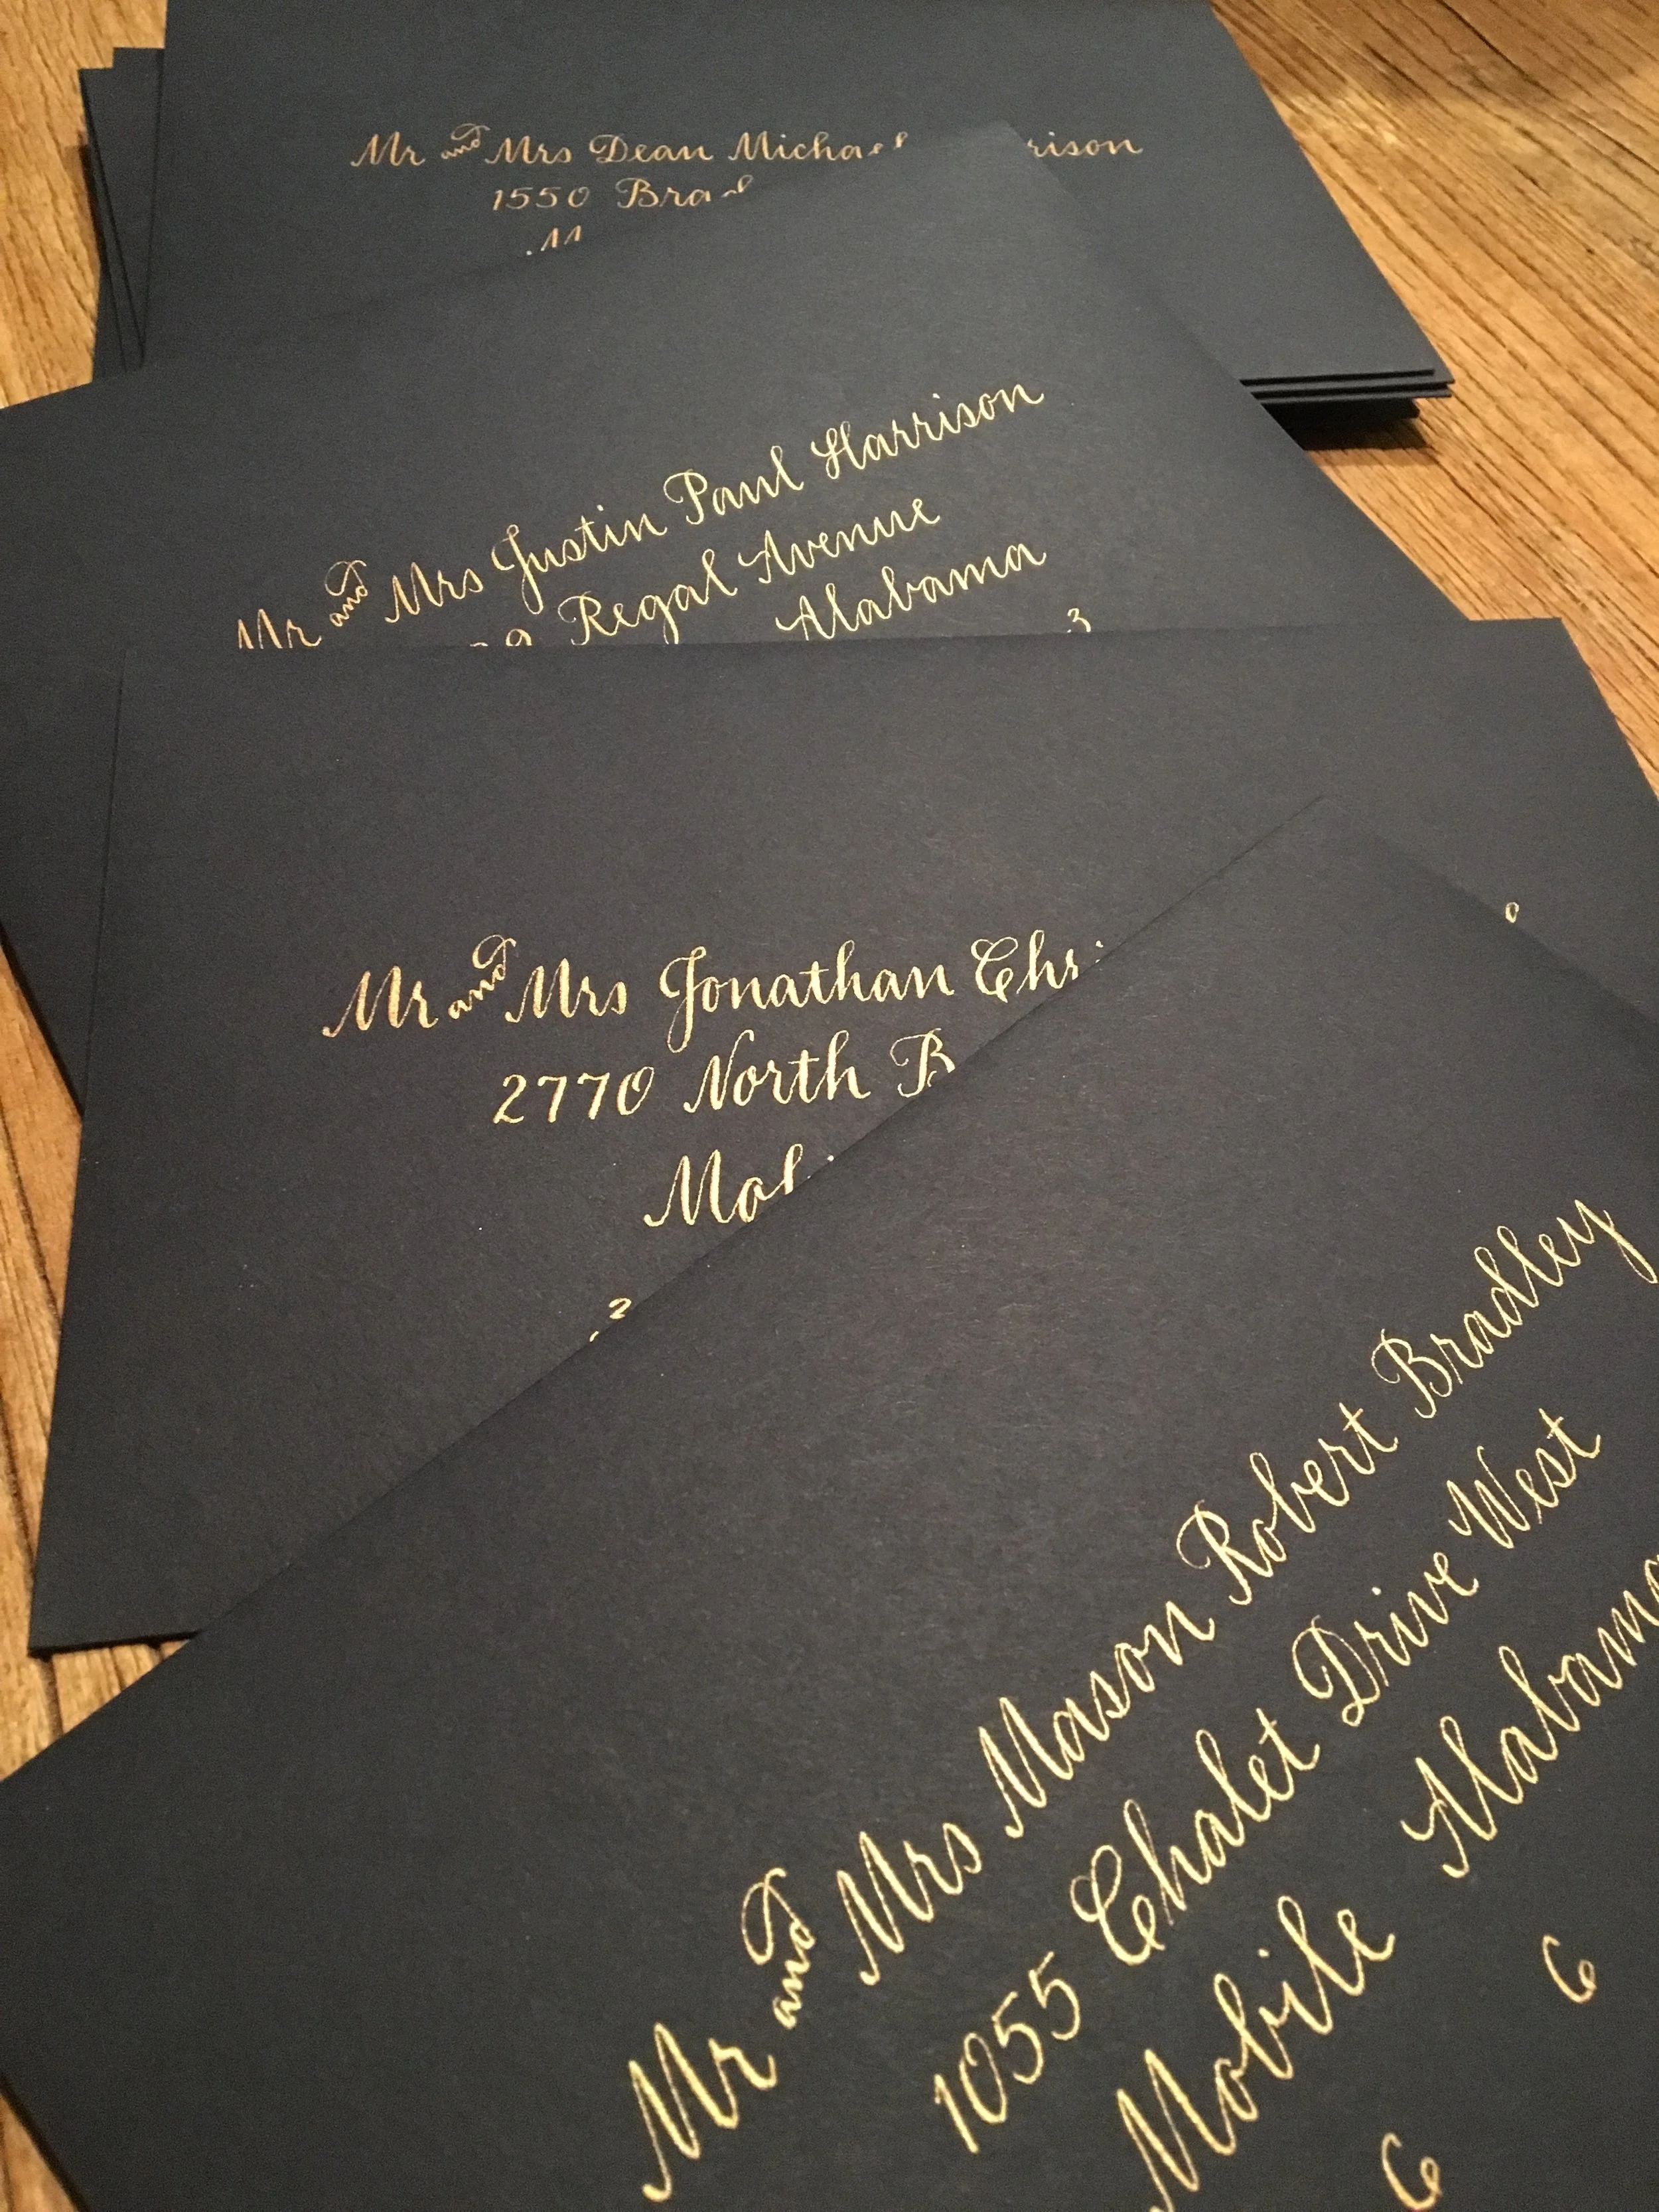 Mr and Mrs Dean Michael
1550
Mr and Mrs Justin Paul Harrison
Regal Avenue
Alabama
3
Mr and Mrs Jonathan
2770 North
2
Mr and Mrs Mason Robert Bradley
1055 Chalet Drive West
Mobile Alabama
6 6